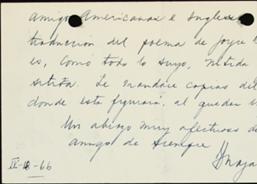 amigos Americanas e Inglesas
traducción del poema de Joyce
es, como todo lo suyo, nítida
Le mandaré copias del
donde este figurará, al quedar
Un abrazo muy afectuoso de
amigo de siempre
IV-66